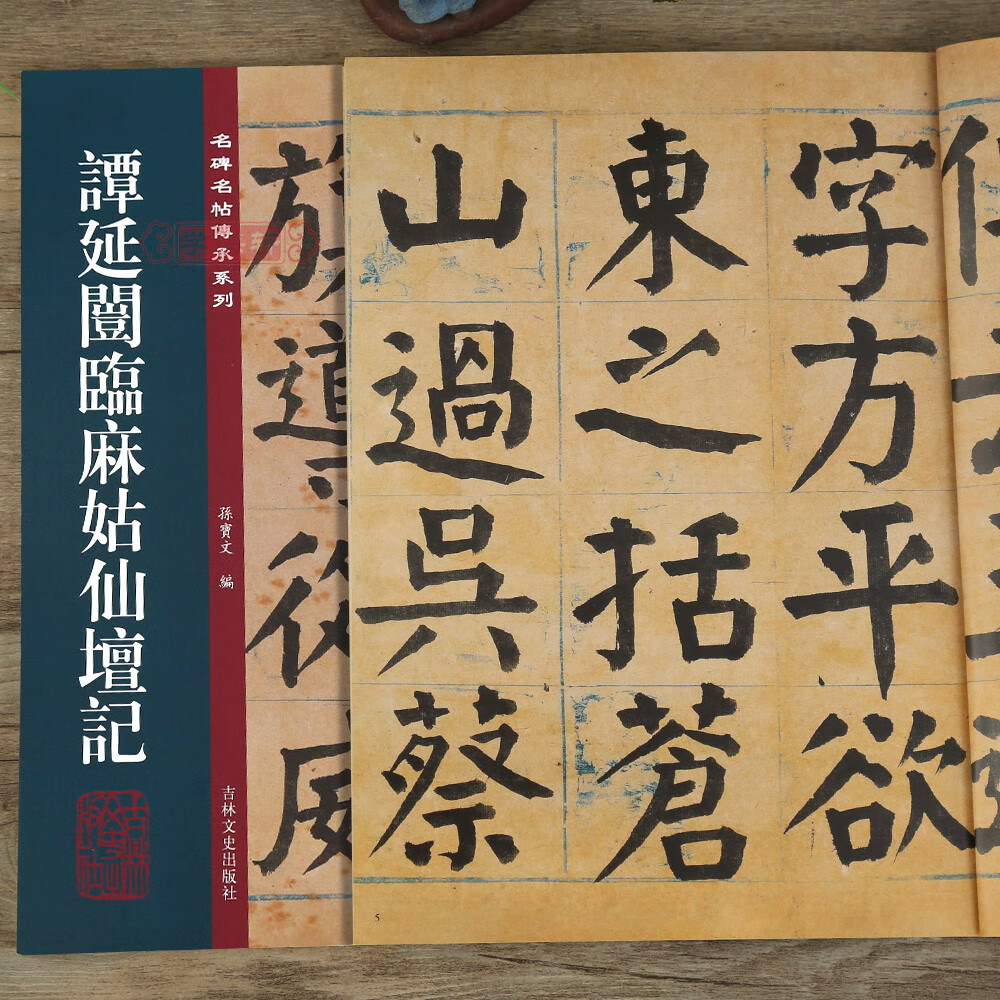 譚延闓臨麻姑仙壇記
名碑名帖傳承系列
孫寶文 編
吉林文史出版社
字方平欲
東之括蒼
山過吳蔡
5